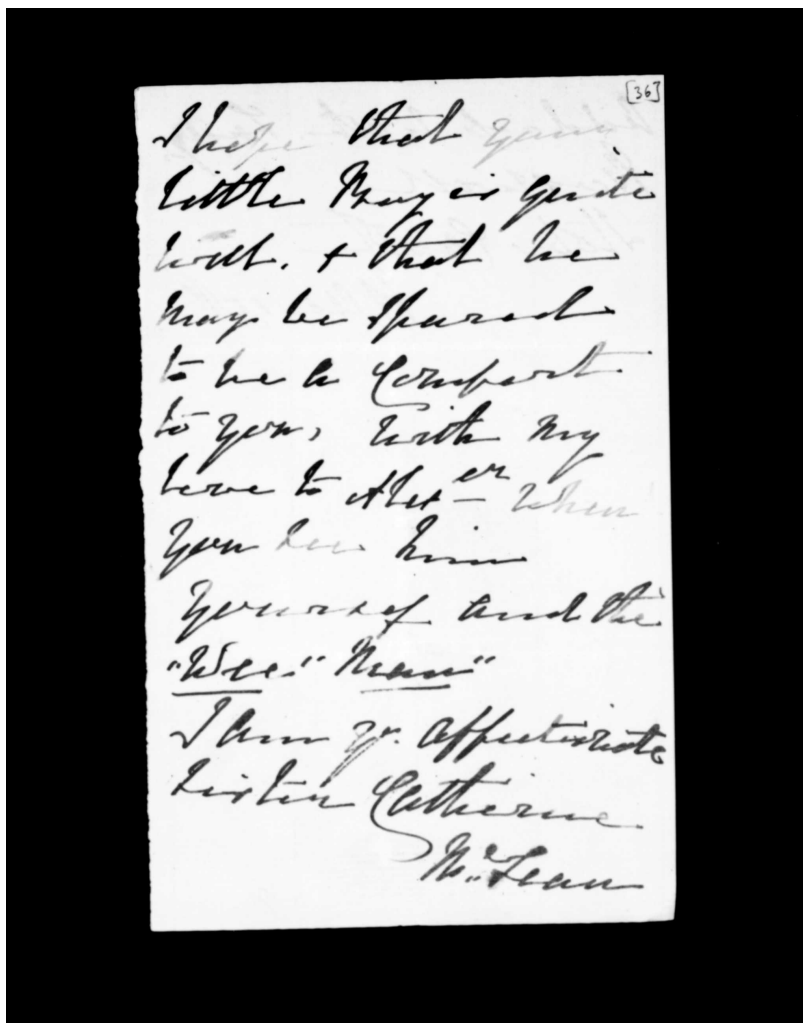 [36]
I hope that your
little Boy is quite
well. + that he
may be spared
to be a Comfort
to you, with my
love to Alexer when
you see him
yourself and the
"Wee" Man"
I am yr. affectionate
Sister Catherine
McLean